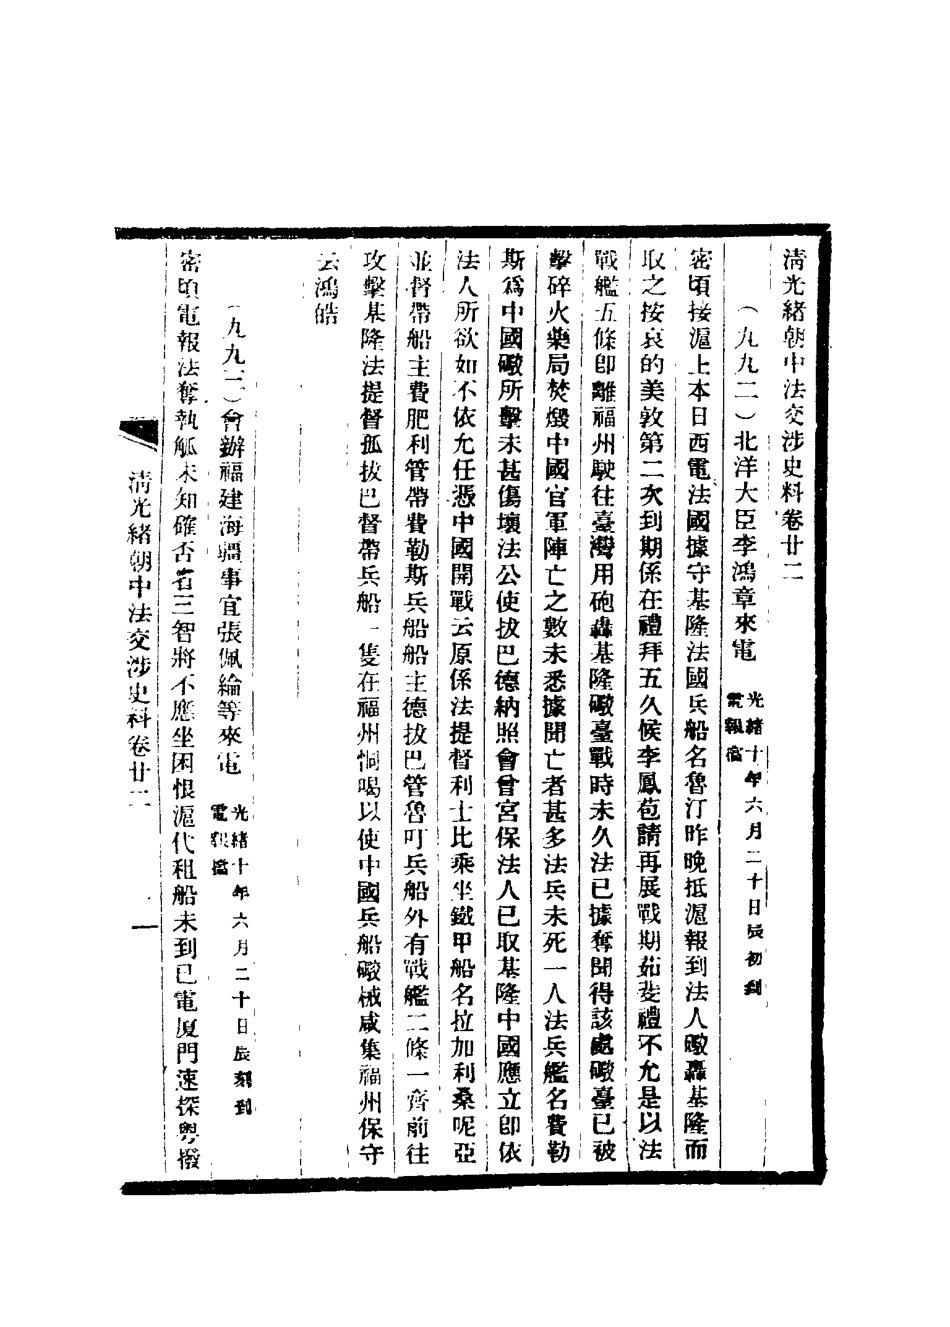 清光緒朝中法交涉史料卷廿二
（九九二）北洋大臣李鴻章來電
光緒十年六月二十日辰初到
電報檔
密頃接滬上本日西電法國據守基隆法國兵船名魯汀昨晚抵滬報到法人礮轟基隆而
取之按哀的美敦第二次到期係在禮拜五久候李鳳苞請再展戰期茹斐禮不允是以法
戰艦五條即離福州駛往臺灣用砲轟基隆礮臺戰時未久法已據奪聞得該處礮臺已被
擊碎火藥局焚燬中國官軍陣亡之數未悉據聞亡者甚多法兵未死一人法兵艦名費勒
斯爲中國礮所擊未甚傷壞法公使拔巴德納照會曾宮保法人已取基隆中國應立即依
法人所欲如不依允任憑中國開戰云原係法提督利士比乘坐鐵甲船名拉加利桑呢亞
並督帶船主費肥利管帶費勒斯兵船船主德拔巴管魯叮兵船外有戰艦二條一齊前往
攻擊基隆法提督孤拔巴督帶兵船一隻在福州恫喝以使中國兵船礮械咸集福州保守
云鴻皓
（九九三）會辦福建海疆事宜張佩綸等來電
光緒十年六月二十日辰刻到
電報檔
密頃電報法奪執觚未知確否省三智將不應坐困恨滬代租船未到已電厦門速探粵撥
清光緒朝中法交涉史料卷廿二
一